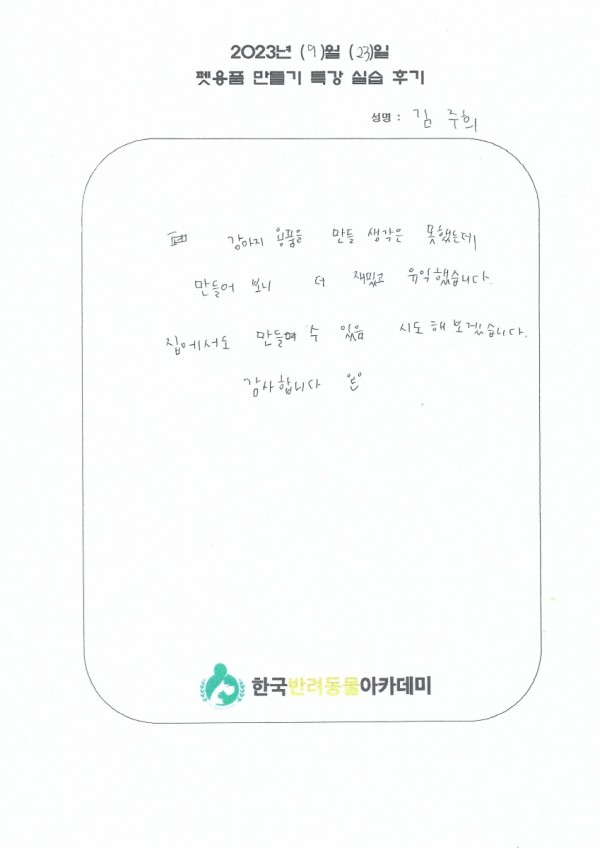 2023년 (9)월 (23)일
펫용품 만들기 특강 실습 후기
성명 : 김 주희
강아지 용품을 만들 생각은 못했는데
만들어 보니 더 재밌고 유익했습니다.
집에서도 만들 수 있음 시도해보겠습니다.
감사합니다
한국반려동물아카데미